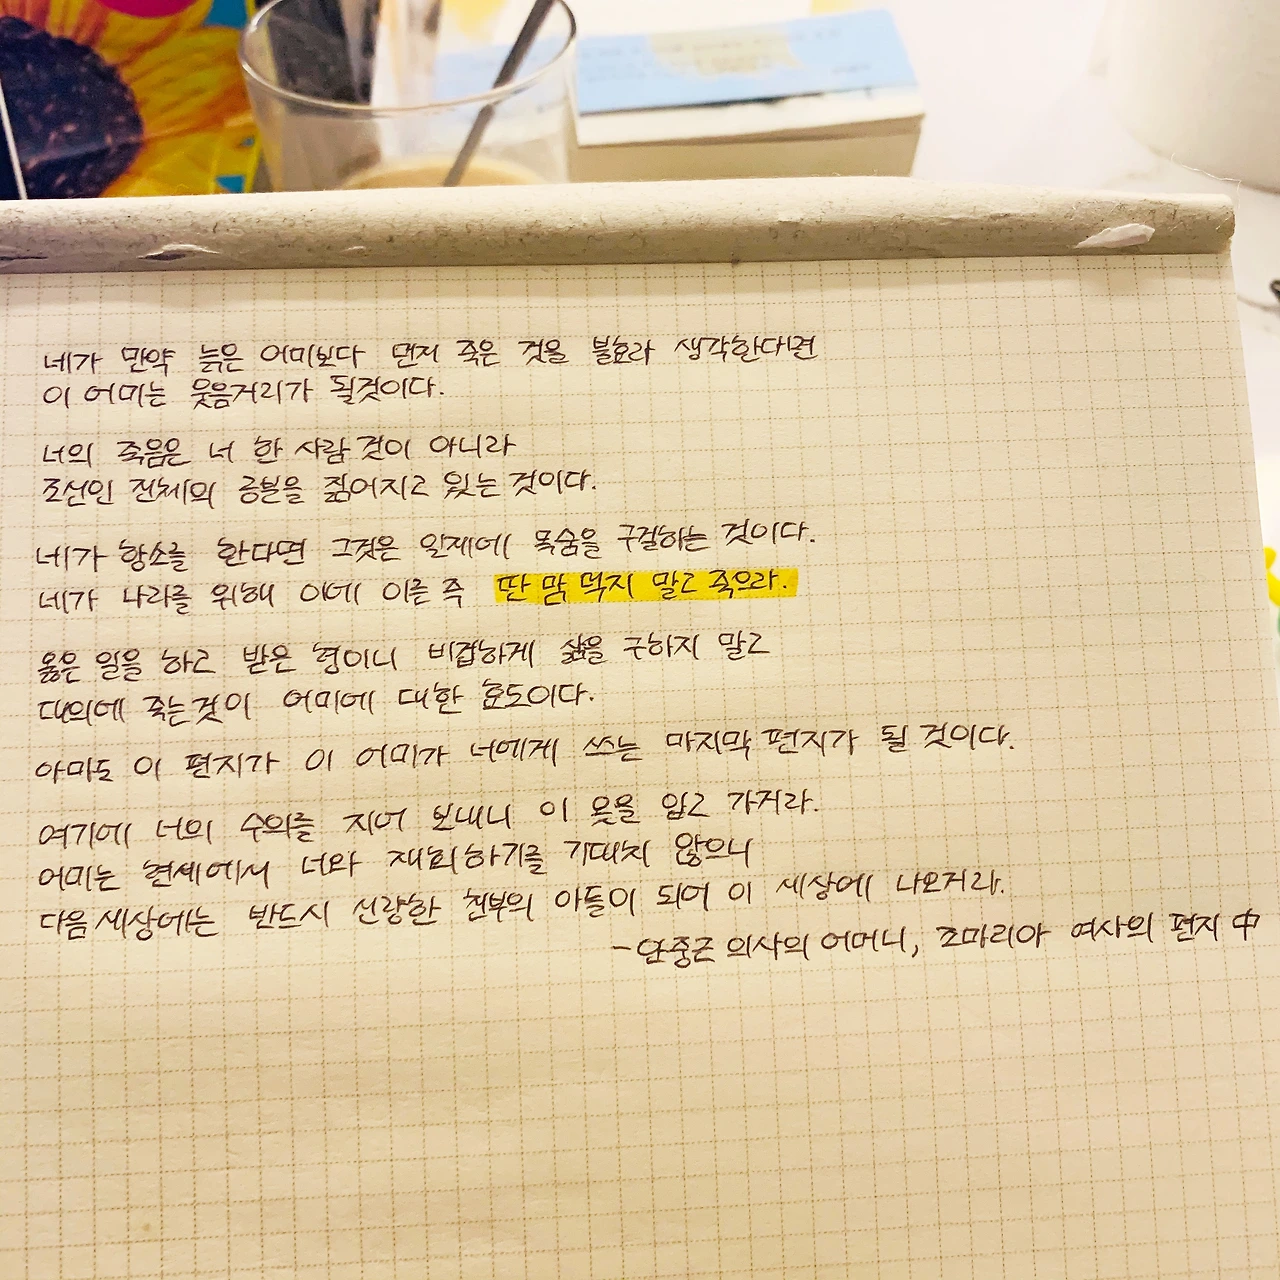 네가 만약 늙은 어미보다 먼저 죽은 것을 불효라 생각한다면
이 어미는 웃음거리가 될것이다.
너의 죽음은 너 한 사람 것이 아니라
조선인 전체의 공분을 짊어지고 있는 것이다.
네가 항소를 한다면 그것은 일제에 목숨을 구걸하는 것이다.
네가 나라를 위해 이에 이른 즉 딴 맘 먹지 말고 죽으라.
옳은 일을 하고 받은 형이니 비겁하게 삶을 구하지 말고
대의에 죽는것이 어미에 대한 효도이다.
아마도 이 편지가 이 어미가 너에게 쓰는 마지막 편지가 될 것이다.
여기에 너의 수의를 지어 보내니 이 옷을 입고 가거라.
어미는 현세에서 너와 재회하기를 기대치 않으니
다음 세상에는 반드시 선량한 천부의 아들이 되어 이 세상에 나오거라.
-안중근 의사의 어머니, 조마리아 여사의 편지 中